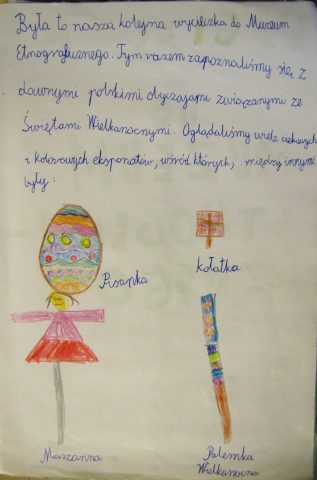 Była to nasza kolejna wycieczka do Muzeum
Etnograficznego. Tym razem zapoznaliśmy się z
dawnymi polskimi obyczajami związanymi ze
Świętami Wielkanocnymi. Oglądaliśmy wiele ciekawych
i kolorowych eksponatów, wśród których, między innymi
były:
Pisanka
kołatka
Marzanna
Palemka
Wielkanocna